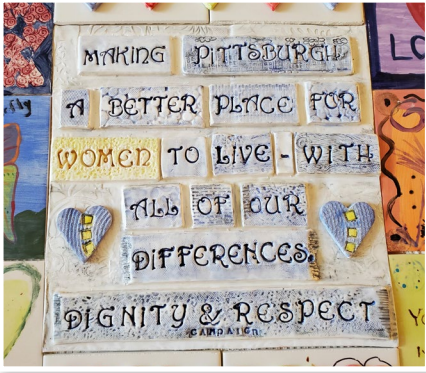 MAKING PITTSBURGH
A BETTER PLACE FOR
WOMEN TO LIVE - WITH
ALL OF OUR
DIFFERENCES.
DIGNITY & RESPECT
CAMPAIGN
LO
fly
YO